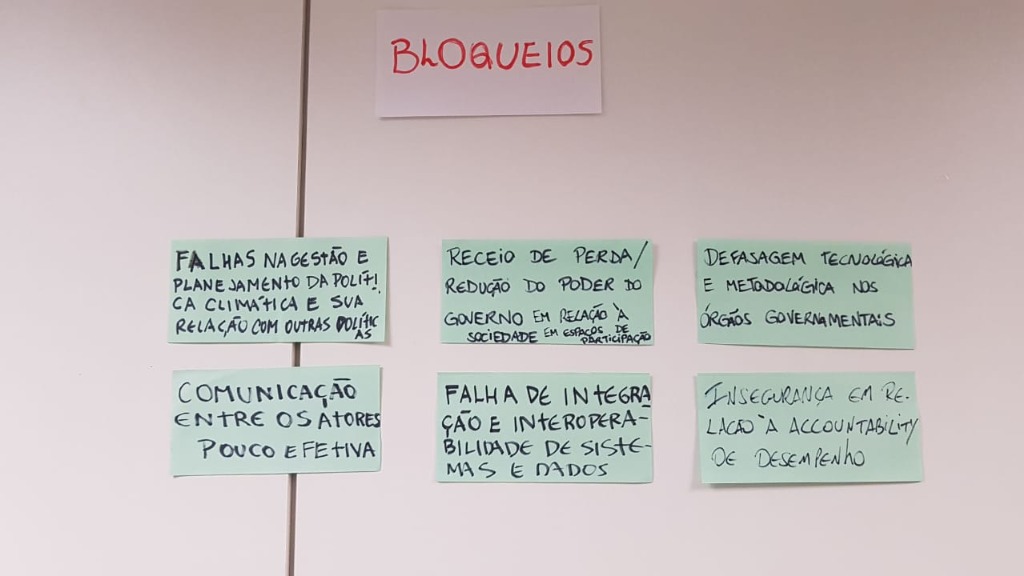 BLOQUEIOS
FALHAS NA GESTÃO E
PLANEJAMENTO DA POLÍTI
CA CLIMÁTICA E SUA
RELAÇÃO COM OUTRAS POLÍTIC
AS
RECEIO DE PERDA/
REDUÇÃO DO PODER DO
GOVERNO EM RELAÇÃO À
SOCIEDADE EM ESPAÇOS DE
PARTICIPAÇÃO
DEFASAGEM TECNOLÓGICA
E METODOLÓGICA NOS
ÓRGÃOS GOVERNAMENTAIS
COMUNICAÇÃO
ENTRE OS ATORES
POUCO EFETIVA
FALHA DE INTEGRA
ÇÃO E INTEROPERA-
BILIDADE DE SISTE-
MAS E DADOS
INSEGURANÇA EM RE-
LAÇÃO À ACCOUNTABILITY
DE DESEMPENHO